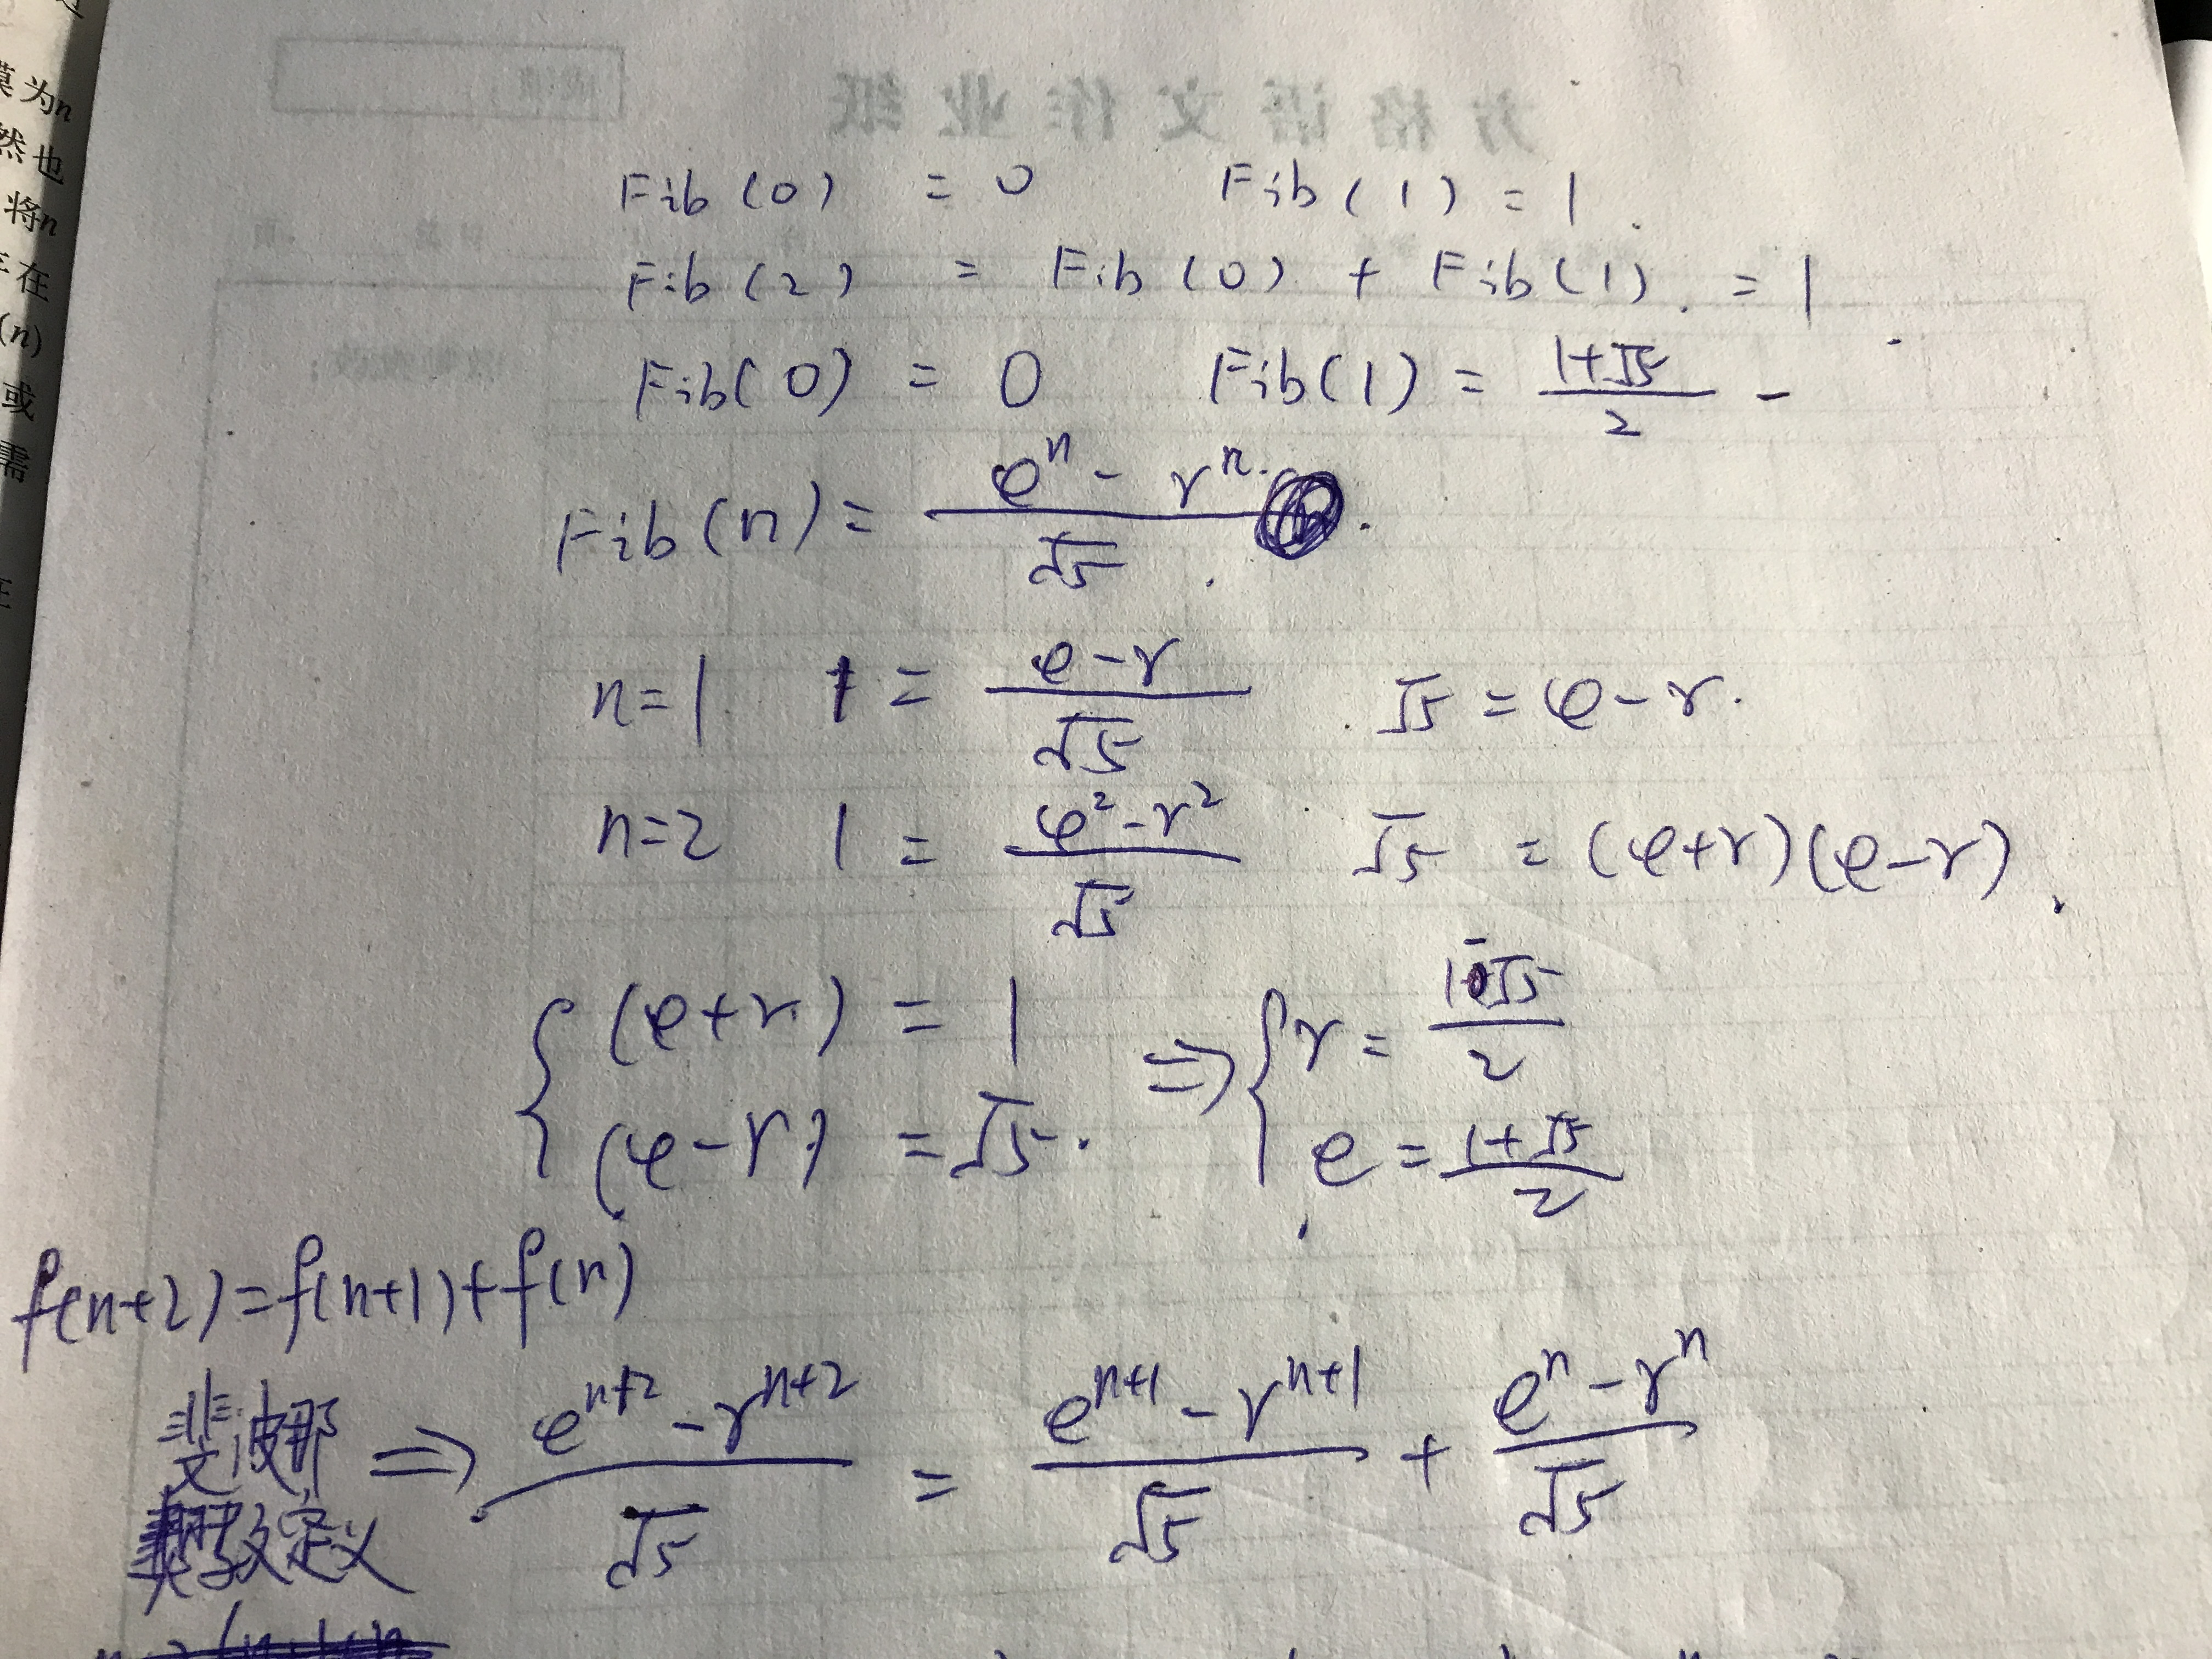 莫为n
然也
将n
在
(n)
或
需
方格语文作业纸
Fib(0) = 0 Fib(1) = 1.
Fib(2) = Fib(0) + Fib(1). = 1.
Fib(0) = 0 Fib(1) = (1+√5)/2 -
Fib(n) = (φⁿ - rⁿ)/√5.
n=1 1 = (φ-r)/√5 √5 = φ-r.
n=2 1 = (φ²-r²)/√5 √5 = (φ+r)(φ-r).
{(φ+r) = 1 ⇒ {r = (1-√5)/2
(φ-r) = √5. φ = (1+√5)/2
f(n+2)=f(n+1)+f(n)
斐波那 ⇒ (φⁿ⁺² - rⁿ⁺²)/√5 = (φⁿ⁺¹ - rⁿ⁺¹)/√5 + (φⁿ - rⁿ)/√5
数定义